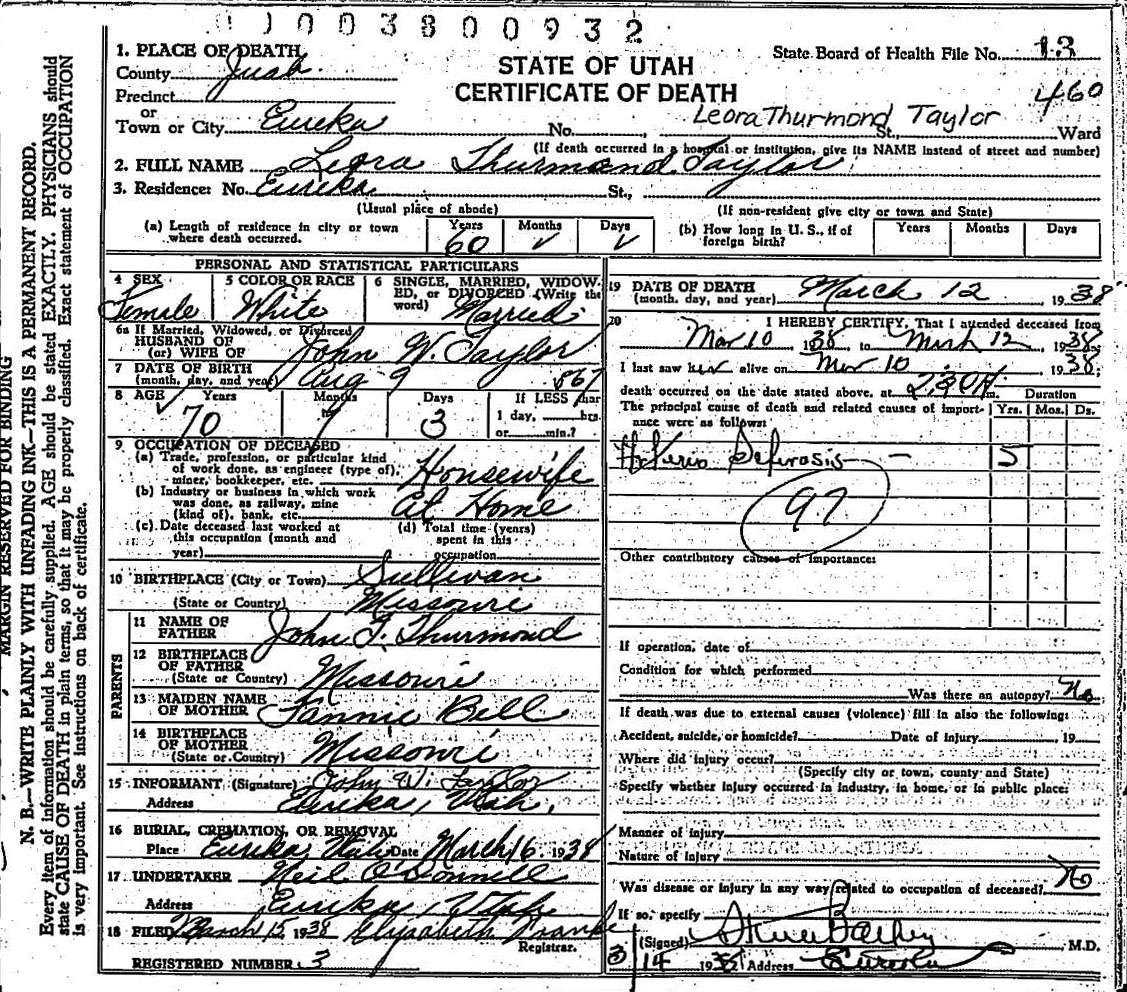 0100380932
MARGIN RESERVED FOR BINDING
N. B.—WRITE PLAINLY WITH UNFADING INK—THIS IS A PERMANENT RECORD.
Every item of information should be carefully supplied. AGE should be stated EXACTLY. PHYSICIANS should
state CAUSE OF DEATH in plain terms, so that it may be properly classified. Exact statement of OCCUPATION
is very important. See instructions on back of certificate.
STATE OF UTAH
CERTIFICATE OF DEATH
State Board of Health File No. 13
460
1. PLACE OF DEATH
County Juab
Precinct
or
Town or City Eureka No. , Leora Thurmond Taylor St., Ward
(If death occurred in a hospital or institution, give its NAME instead of street and number)
2. FULL NAME Leora Thurmond Taylor
3. Residence: No. Eureka St.,
(Usual place of abode) (If non-resident give city or town and State)
(a) Length of residence in city or town where death occurred. Years 60 Months ✓ Days ✓
(b) How long in U. S., if of foreign birth? Years Months Days
PERSONAL AND STATISTICAL PARTICULARS
4 SEX Female
5 COLOR OR RACE White
6 SINGLE, MARRIED, WIDOWED, or DIVORCED (Write the word) Married
6a If Married, Widowed, or Divorced
HUSBAND OF
(or) WIFE OF John W. Taylor
7 DATE OF BIRTH
(month, day, and year) Aug 9 867
8 AGE Years 70 Months 7 Days 3
If LESS than
1 day, hrs.
or min.?
9 OCCUPATION OF DECEASED
(a) Trade, profession, or particular kind
of work done, as engineer (type of),
miner, bookkeeper, etc. Housewife
(b) Industry or business in which work
was done, as railway, mine
(kind of), bank, etc. At Home
(c) Date deceased last worked at
this occupation (month and
year)
(d) Total time (years)
spent in this
occupation
10 BIRTHPLACE (City or Town) Sullivan
(State or Country) Missouri
PARENTS
11 NAME OF
FATHER John T. Thurmond
12 BIRTHPLACE
OF FATHER
(State or Country) Missouri
13 MAIDEN NAME
OF MOTHER Fannie Bell
14 BIRTHPLACE
OF MOTHER
(State or Country) Missouri
15 INFORMANT (Signature) John W. Taylor
Address Eureka, Utah.
16 BURIAL, CREMATION, OR REMOVAL
Place Eureka Utah Date March 16 1938
17 UNDERTAKER Neil O'Donnell
Address Eureka, Utah
18 FILED March 15 1938 Elizabeth
Registrar.
REGISTERED NUMBER 3
19 DATE OF DEATH
(month, day, and year) March 12 1938
20 I HEREBY CERTIFY, That I attended deceased from
Mar 10 1938, to March 12 1938
I last saw her alive on Mar 10 1938;
death occurred on the date stated above, at 2:30 A m. Duration
The principal cause of death and related causes of importance were as follows: Yrs. Mos. Ds.
Sclerosis — 5
97
Other contributory causes of importance:
If operation, date of
Condition for which performed
Was there an autopsy? No
If death was due to external causes (violence) fill in also the following:
Accident, suicide, or homicide? Date of injury 19
Where did injury occur?
(Specify city or town, county and State)
Specify whether injury occurred in industry, in home, or in public place:
Manner of injury
Nature of injury
Was disease or injury in any way related to occupation of deceased? No
If so, specify
(Signed) Steve Bailey M.D.
3/14 1938 Address Eureka